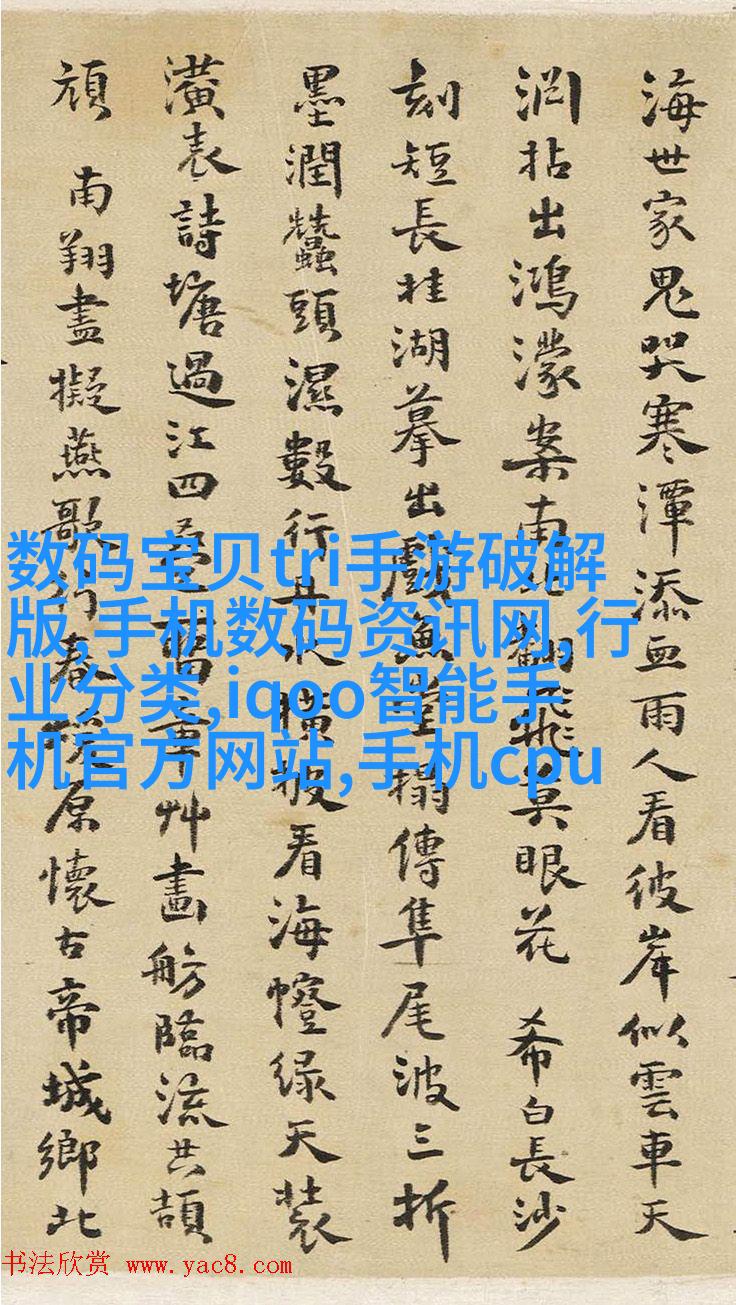 海世家鬼哭寒潭添血雨人看彼岸似雲車天
拈出鴻濛案南翻飛眼花 希白長沙
刻短長桂湖摹出戲魚堂搨傳隼尾波三折
墨潤蠶頭濕數行橫披看海幢绿天裝
潢表詩塘過江四舊章艸畫舫臨流共頡
頏 南翔盡擬燕歌行春原懷古帝城鄉北
数码宝贝tri手游破解
版,手机数码资讯网,行
业分类,iqoo智能手
机官方网站,手机cpu
书法欣赏 www.yac8.com